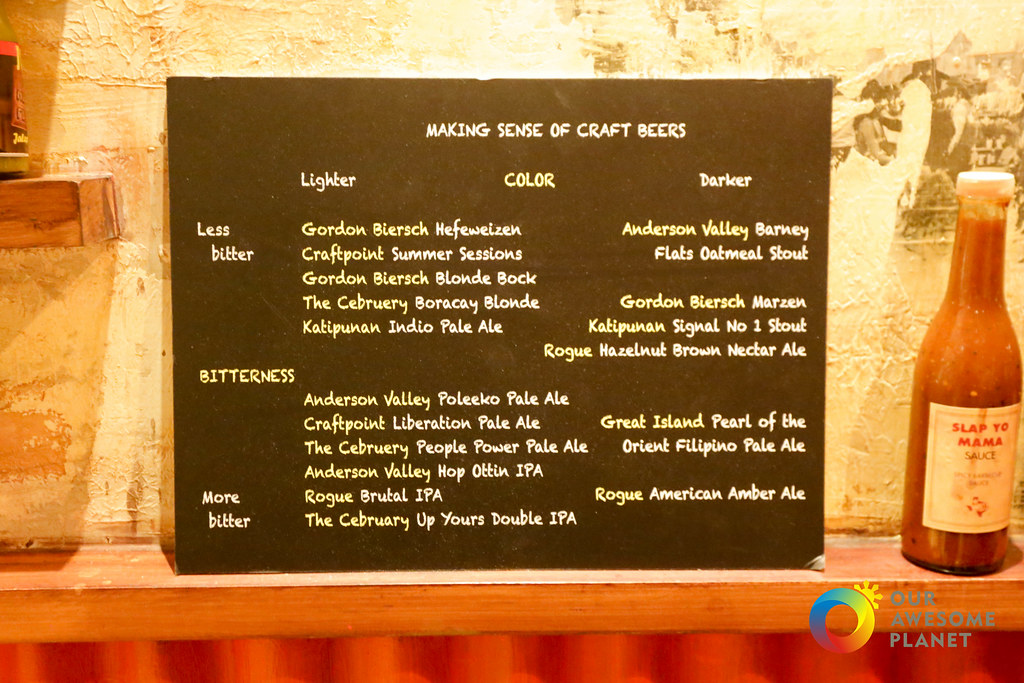 MAKING SENSE OF CRAFT BEERS
Lighter COLOR Darker
Less Gordon Biersch Hefeweizen Anderson Valley Barney
bitter Craftpoint Summer Sessions Flats Oatmeal Stout
Gordon Biersch Blonde Bock
The Cebruery Boracay Blonde Gordon Biersch Marzen
Katipunan Indio Pale Ale Katipunan Signal No 1 Stout
Rogue Hazelnut Brown Nectar Ale
BITTERNESS
Anderson Valley Poleeko Pale Ale
Craftpoint Liberation Pale Ale Great Island Pearl of the
The Cebruery People Power Pale Ale Orient Filipino Pale Ale
Anderson Valley Hop Ottin IPA
More Rogue Brutal IPA Rogue American Amber Ale
bitter The Cebruary Up Yours Double IPA
SLAP YO
MAMA
SAUCE
OUR
AWESOME
PLANET